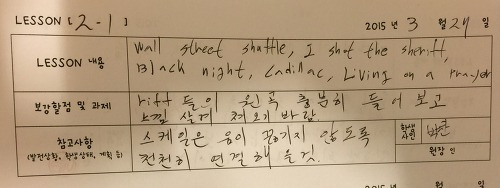 LESSON [2-1] 2015 년 3 월 29 일
LESSON 내용
Wall street shuffle, I shot the sheriff,
Black night, Cadillac, Living on a Prayer
보강할점 및 과제
riff 들의 원곡 충분히 들어 보고
느낌 살려 쳐오기 바람.
참고사항
(발전상황, 학생상태, 계획 등)
스케일은 음이 끊기지 않도록
천천히 연결해 둘것.
학생
사인
원장 인
2015 년 월 일